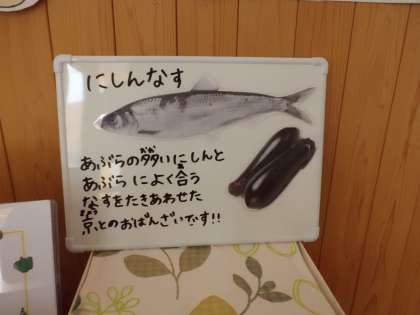 にしんなす
あぶらの多いにしんと
あぶらによく合う
なすをたきあわせた
京とのおばんざいです!!